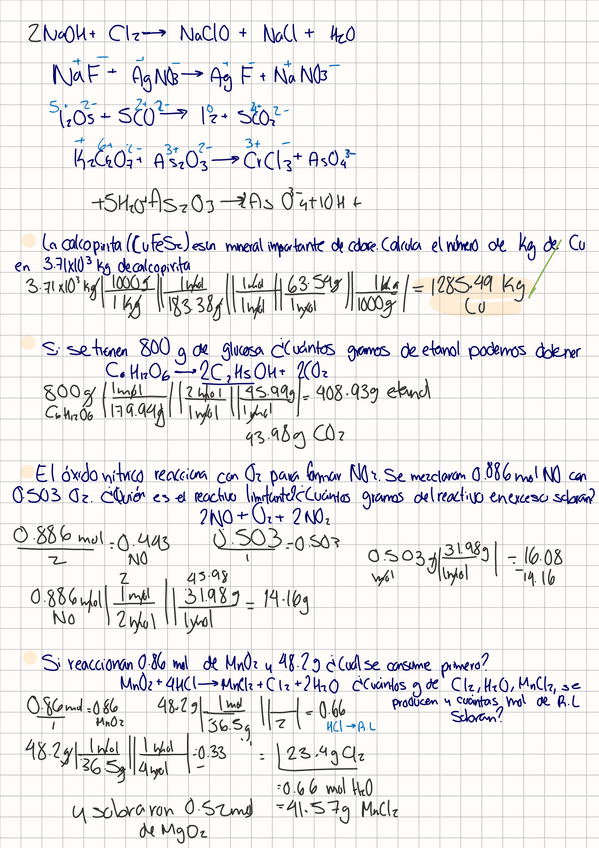 2NaOH + Cl2 → NaClO + NaCl + H2O
NaF + AgNO3 → AgF + NaNO3
I2O5 + 5CO → I2 + 5CO2
K2Cr2O7 + As2O3 → CrCl3 + AsO4
+5H2O As2O3 → 2AsO4 + 10H+
La calcopirita (CuFeS2) es un mineral importante de cobre. Calcula el número de Kg de Cu
en 3.71x10³ kg de calcopirita
3.71x10³ kg | 1000g / 1 kg || 1mol / 183.38g || 1mol / 1mol || 63.54g / 1mol || 1Kg / 1000g | = 1285.49 Kg Cu
Si se tienen 800 g de glucosa ¿Cuántos gramos de etanol podemos obtener
C6H12O6 → 2C2H5OH + 2CO2
800g C6H12O6 | 1mol / 179.94g || 2mol / 1mol || 45.99g / 1mol | = 408.93g etanol
43.98g CO2
El óxido nítrico reacciona con O2 para formar NO2. Se mezclaron 0.886 mol NO con
0.503 O2. ¿Quién es el reactivo limitante? ¿Cuántos gramos del reactivo en exceso sobran?
2NO + O2 + 2NO2
0.886 mol / 2 = 0.443 NO 0.503 / 1 = 0.503
0.503 | 31.98g / 1mol | = 16.08
-14.16
2 45.98
0.886 mol NO | 1mol / 2mol || 31.98g / 1mol | = 14.16g
Si reaccionan 0.86 mol de MnO2 y 48.2g ¿Cuál se consume primero?
MnO2 + 4HCl → MnCl2 + Cl2 + 2H2O ¿Cuántos g de Cl2, H2O, MnCl2, se
producen y cuántas mol de R.L
sobran?
0.86 mol / 1 = 0.86 MnO2 48.2g | 1mol / 36.5g || / 2 | = 0.66
HCl → R.L
48.2g | 1mol / 36.5g || 1mol / 4mol | = 0.33 = 23.4g Cl2
= 0.66 mol H2O
y sobraron 0.52mol = 41.57g MnCl2
de MgO2